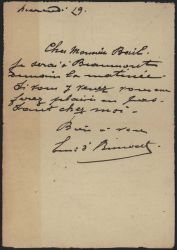 mercredi 19.
Cher Monsieur Boil.
Je serai à Beaumont
demain la matinée
Si vous y venez vous me
ferez plaisir en pas-
sant chez moi.
Bien à vous